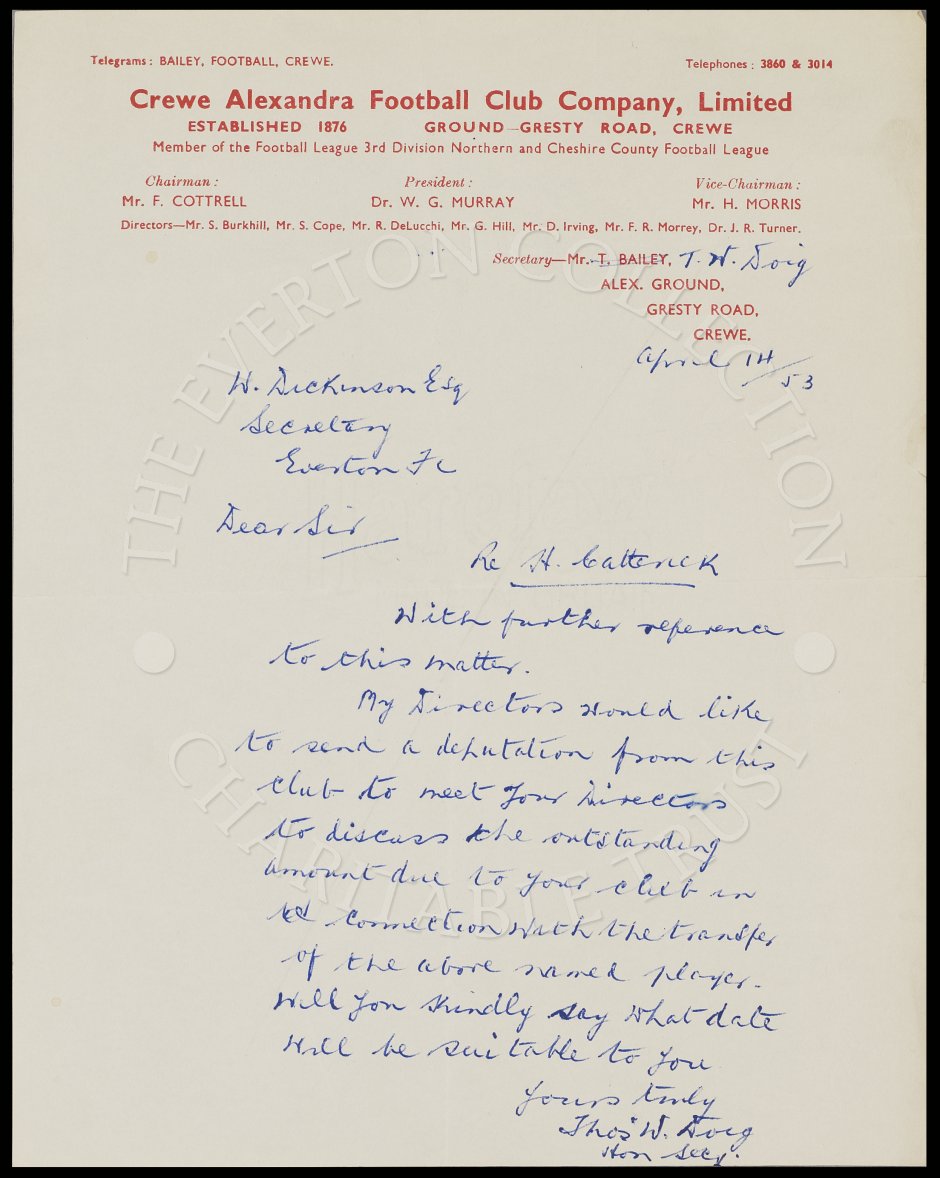 Telegrams: BAILEY, FOOTBALL, CREWE. Telephones: 3860 & 3014
Crewe Alexandra Football Club Company, Limited
ESTABLISHED 1876 GROUND—GRESTY ROAD, CREWE
Member of the Football League 3rd Division Northern and Cheshire County Football League
Chairman: President: Vice-Chairman:
Mr. F. COTTRELL Dr. W. G. MURRAY Mr. H. MORRIS
Directors—Mr. S. Burkhill, Mr. S. Cope, Mr. R. DeLucchi, Mr. G. Hill, Mr. D. Irving, Mr. F. R. Morrey, Dr. J. R. Turner.
Secretary—Mr. T. BAILEY, T. W. Doig
ALEX. GROUND,
GRESTY ROAD,
CREWE.
April 14/53
W. Dickinson Esq
Secretary
Everton Fc
Dear Sir
Re H. Catterick
With further reference
to this matter.
My Directors would like
to send a deputation from this
club to meet your Directors
to discuss the outstanding
amount due to your club in
connection with the transfer
of the above named player.
Will you kindly say what date
will be suitable to you
Yours truly
Thos W. Doig
Hon Secy.
THE EVERTON COLLECTION
CHARITABLE TRUST